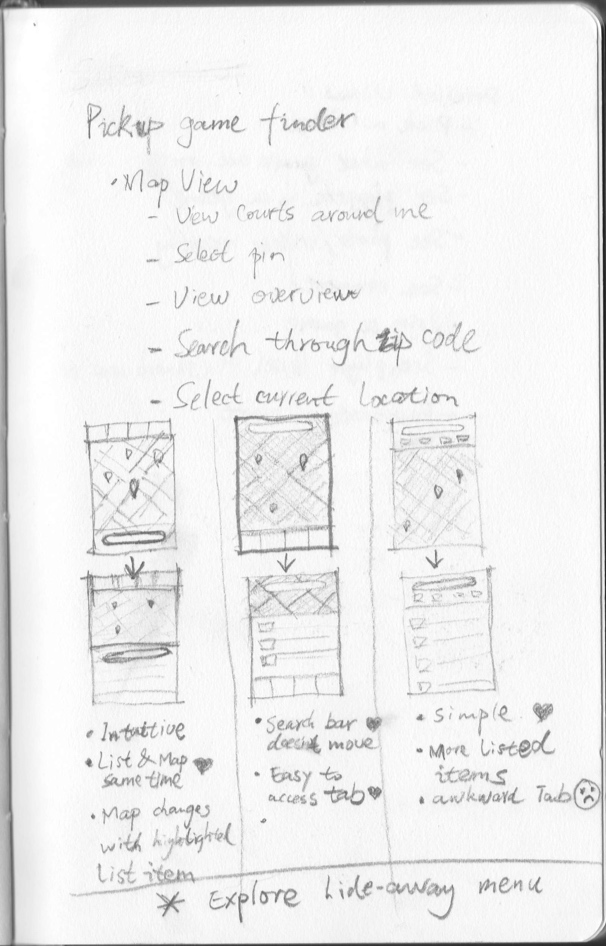 Pickup game finder
• Map View
- View courts around me
- Select pin
- View overview
- Search through zip code
- Select current location
• Intuitive
• List & Map
same time
• Map changes
with highlighted
list item
• Search bar
doesn't move
• Easy to
access tab
• Simple
• More listed
items
• awkward Tab
* Explore hide-away menu